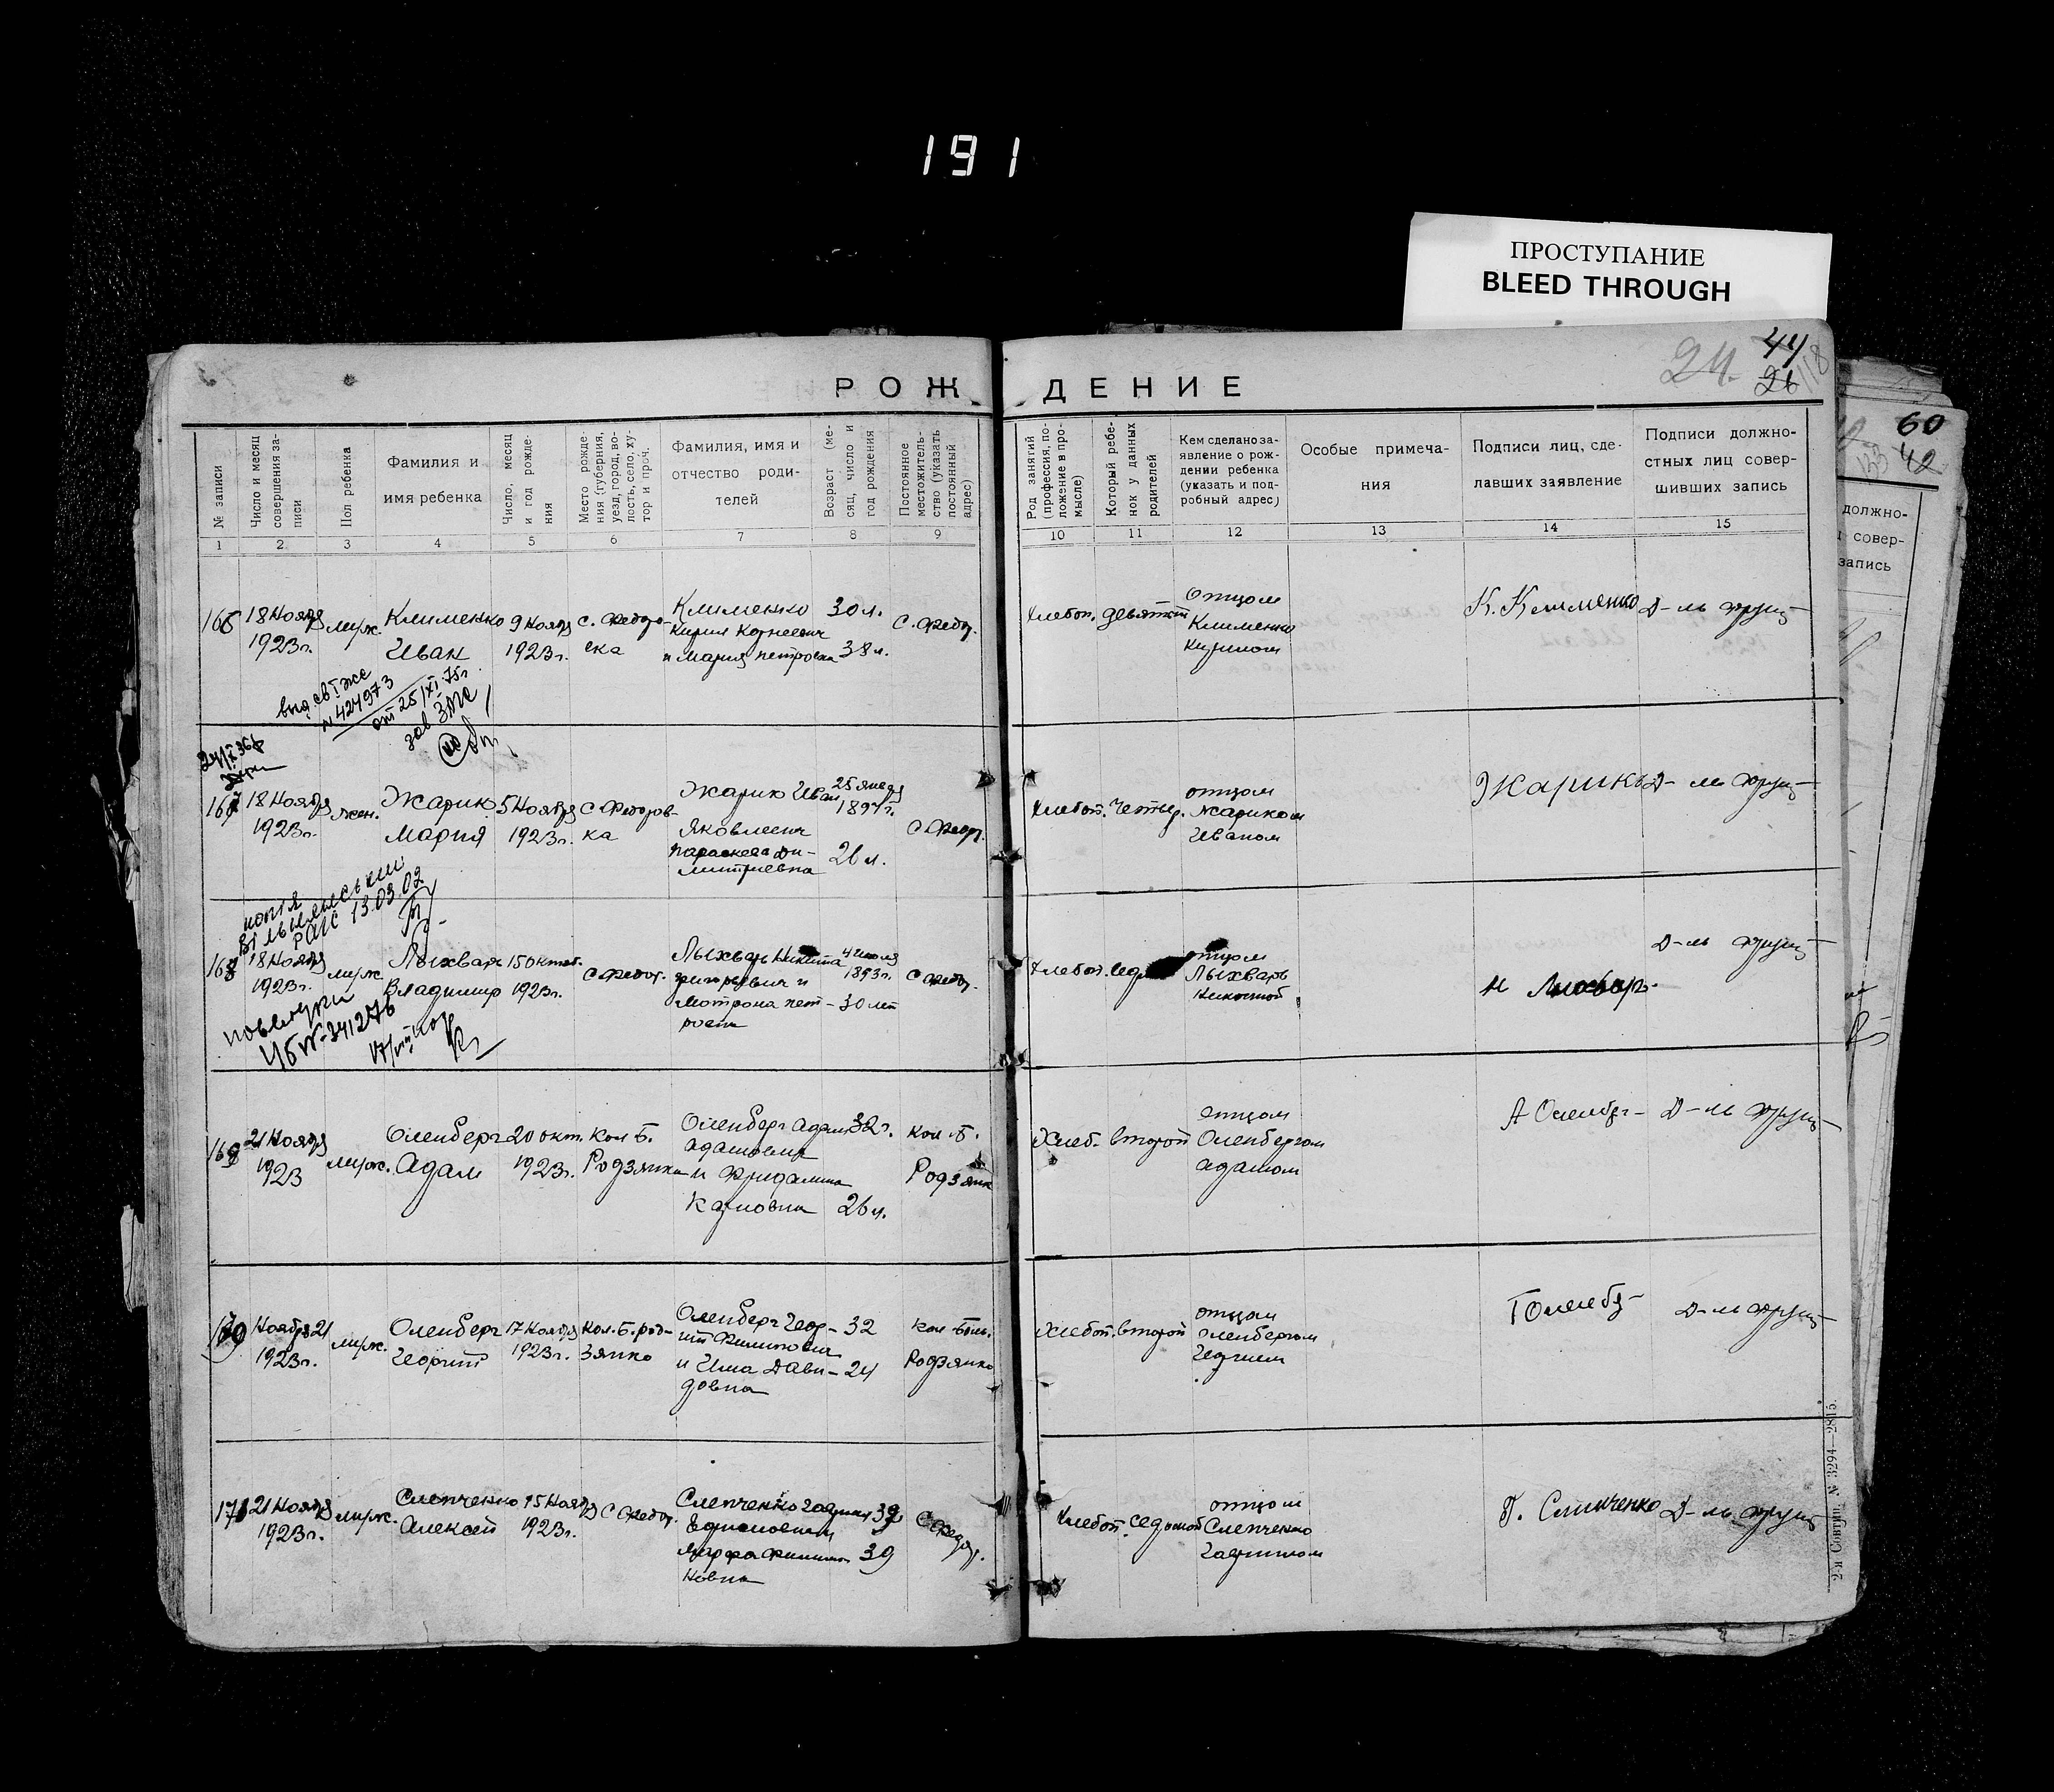 191
ПРОСТУПАНИЕ
BLEED THROUGH
24. 44
26 118
60
42
РОЖДЕНИЕ
№ записи
Число и месяц совершения записи
Пол ребенка
Фамилия и
имя ребенка
Число, месяц и год рождения
Место рождения (губерния, уезд, город, волость, село, хутор и проч.
Фамилия, имя и
отчество роди-
телей
Возраст (месяц, число и год рождения
Постоянное местожительство (указать постоянный адрес)
Род занятий (профессия, положение в промысле)
Который ребенок у данных родителей
Кем сделано за-
явление о рож-
дении ребенка
(указать и под-
робный адрес)
Особые примеча-
ния
Подписи лиц, сде-
лавших заявление
Подписи должно-
стных лиц совер-
шивших запись
1 2 3 4 5 6 7 8 9 10 11 12 13 14 15
должно-
совер-
запись
166 18 Ноября
1923г.
муж.
Клименко
Иван
9 Ноября
1923г.
с. Федоро-
вка
Клименко
Кирил Корнеевич
и Мария Петровна
30 л.
38 л.
с. Федор.
Хлебоп. девятый
отцом
Клименко
Кирилом
К. Клименко
Д-ль
выд. св I же
N 424973
от 25/XI 75г
зав ЗАГС
167 18 Ноября
1923г.
жен.
Жарик
Мария
5 Ноября
1923г.
С Федоров-
ка
Жарик Иван
Яковлевич
Параскева Ди-
митриевна
25 января
1897г.
26 л.
С. Федор.
Хлебоп. Четвер.
отцом
Жариком
Иваном
Жарик
Д-ль
копія
Вільнянський
РАГС 13.03.02
168 18 Ноября
1923г.
муж.
Лыхварь
Владимир
15 октяб.
1923г.
С Федор.
Лыхварь Никита
Григорьевич и
Мотрона Пет-
ровна
4 июля
1893г.
30 лет
С Федор.
Хлебоп.
отцом
Лыхварь
Никитой
Н Лихварь
Д-ль
повторн
N-341276
169 21 Ноября
1923
муж.
Оленберг
Адам
20 окт.
1923г.
Кол Б.
Родзянко
Оленберг Адам
Адамович
и Фридалина
Карловна
32 г.
26 л.
Кол Б.
Родзянк
Хлеб. второй
отцом
Оленбергом
Адамом
А Оленберг
Д-ль
170 Ноября 21
1923г.
муж.
Оленберг
Георгий
17 Ноября
1923г.
Кол. Б. Род-
зянко
Оленберг Геор-
гий Филипович
и Има Дави-
довна
32
24
Кол Боль.
Родзянко
Хлебоп. второй
отцом
Оленбергом
Георгием
Г Оленбер
Д-ль
171 21 Ноября
1923г.
муж.
Слепченко
Алексей
15 Ноября
1923г.
С Федор.
Слепченко Гаврил
Ефимович и
Марфа Филимо-
новна
39
39
С Федор.
Хлебоп. седьмой
отцом
Слепченко
Гаврилом
Г. Слипченко
Д-ль